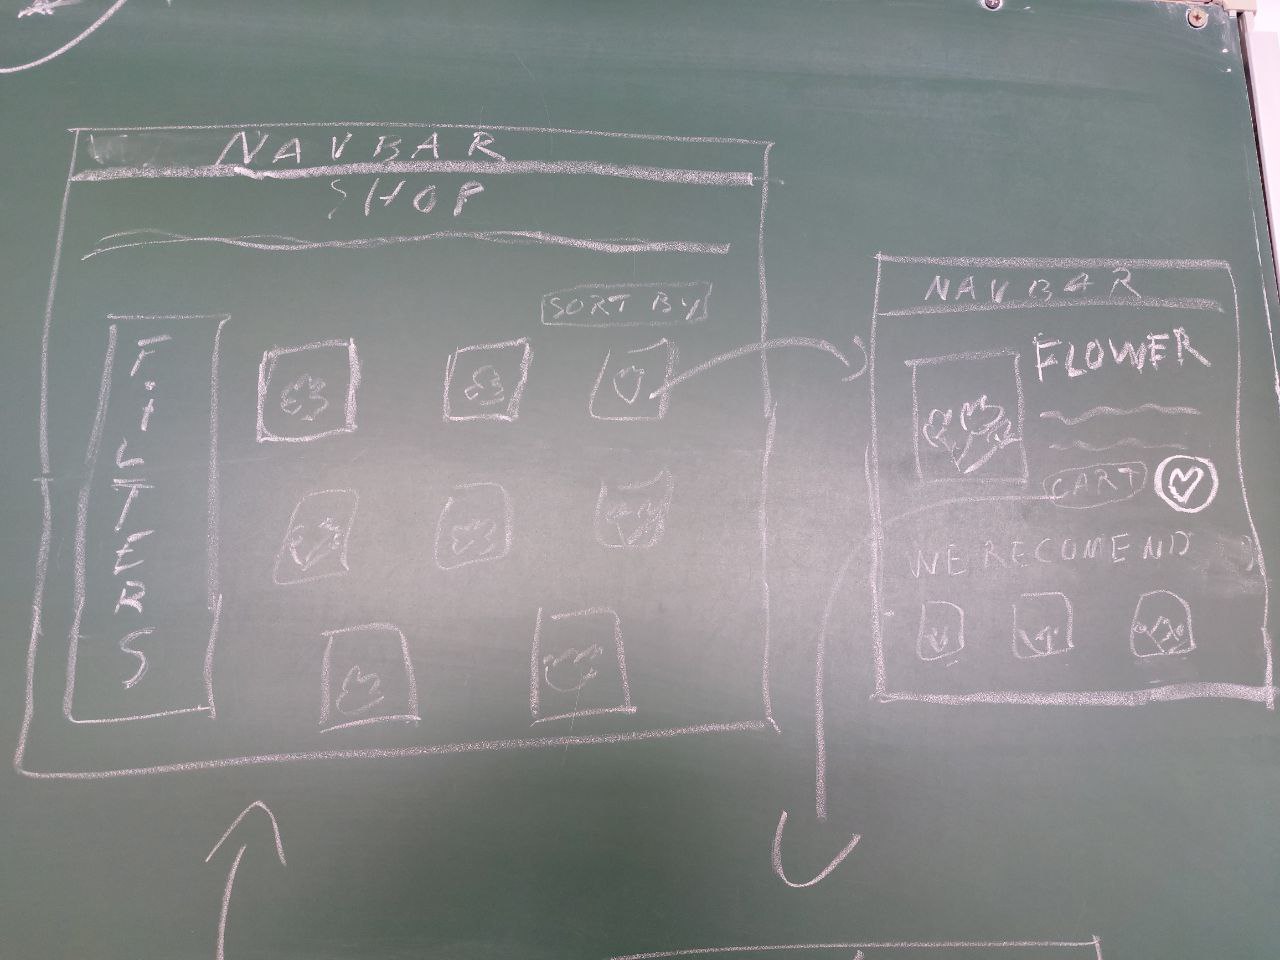 NAVBAR
SHOP
SORT BY
FILTERS
NAVBAR
FLOWER
CART
WE RECOMEND